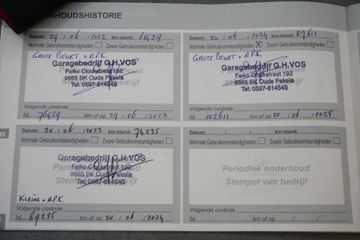 ERHOUDSHISTORIE
Datum: 29-06-2022 km-stand:
Normale Gebruiksomstandigheden Zware Gebruiksomstandigheden
GROTE BEURT + APK
Garagebedrijf G.H.VOS
Feiko Clockstraat 192
9665 BK Oude Pekela
Tel: 0597-614545
Volgende controle
bij 76429 km of op 29-06-2023
Datum: 24-06-2024 km-stand: 87611
Normale Gebruiksomstandigheden Zware Gebruiksomstandigheden
GROTE BEURT + APK
Garagebedrijf G.H.VOS
Feiko Clockstraat 192
9665 BK Oude Pekela
Tel: 0597-614545
Volgende controle
bij 102611 km of op 24-06-2025
Datum: 20-06-2023 km-stand: 74235
Normale Gebruiksomstandigheden Zware Gebruiksomstandigheden
Garagebedrijf G.H.VOS
Feiko Clockstraat 192
9665 BK Oude Pekela
Tel: 0597-614545
KLEINE + APK
Volgende controle
bij 89235 km of op 20-06-2024
Datum: km-stand:
Normale Gebruiksomstandigheden Zware Gebruiksomstandigheden
Periodiek onderhoud
Stempel van bedrijf
Volgende controle
bij km of op